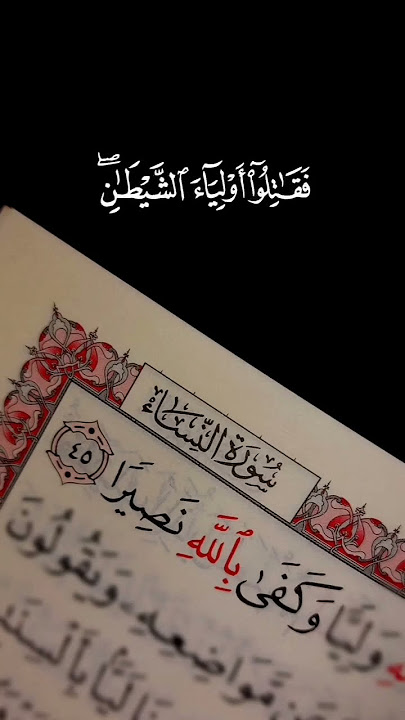 فَقَٰتِلُوٓا۟ أَوْلِيَآءَ ٱلشَّيْطَٰنِ ۖ
سُورَةُ النِّسَاءِ
وَلِيًّا وَكَفَىٰ بِٱللَّهِ نَصِيرًا ٤٥
عَن مَّوَاضِعِهِۦ وَيَقُولُونَ
لَيًّۢا بِأَلْسِنَ